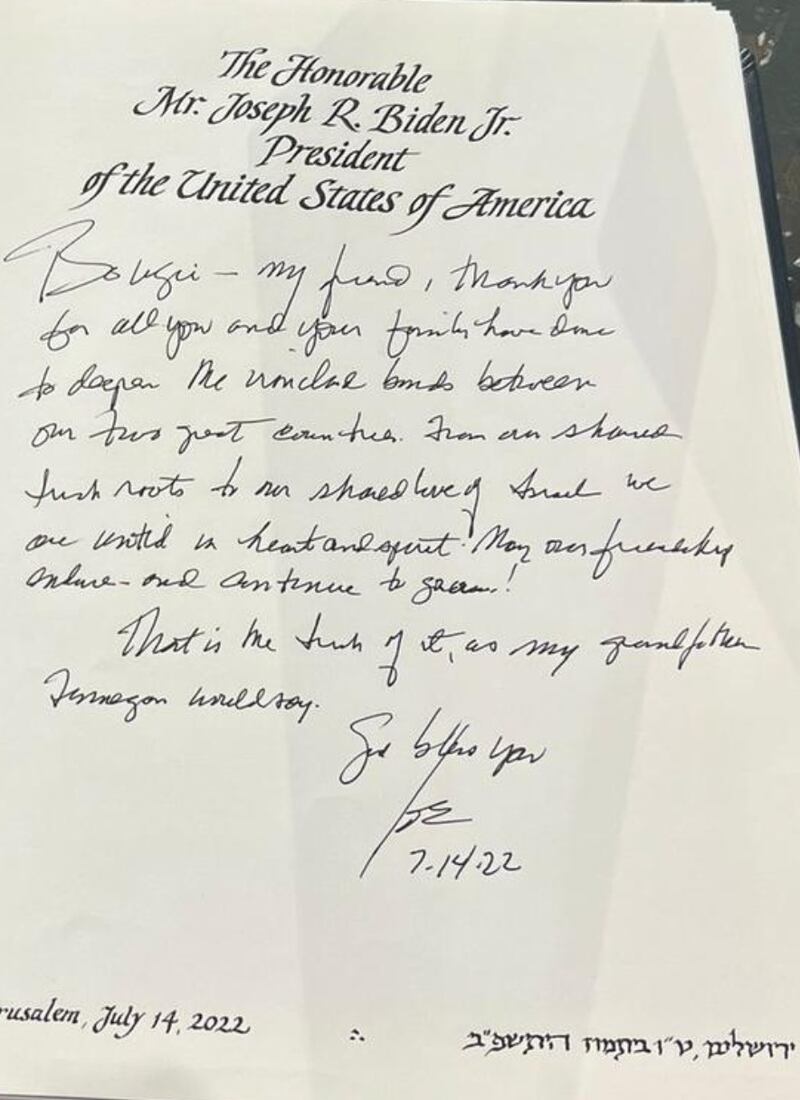 The Honorable
Mr. Joseph R. Biden Jr.
President
of the United States of America
Bougie – my friend, thank you
for all you and your family have done
to deepen the ironclad bonds between
our two great countries. From our shared
Irish roots to our shared love of Israel we
are united in heart and spirit. May our friendship
endure – and continue to grow!
That is the Irish of it, as my grandfather
Finnegan would say.
God bless you
Joe
7.14.22
rusalem, July 14, 2022
ירושלים, ט״ו בתמוז ה׳תשפ״ב